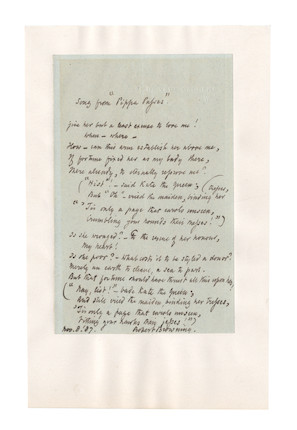 Song from "Pippa Passes"
Give her but a least excuse to love me!
When - where -
How - can this arm establish her above me,
If fortune fixed her as my lady there,
There already, to eternally reprove me?
("Hist" - said Kate the Queen;
But "Oh" - cried the maiden, binding her tresses,
"'Tis only a page that carols unseen,
Crumbling your hounds their messes!")
Is she wronged? - To the rescue of her honour,
My heart!
Is she poor? - What costs it to be styled a donor?
Merely an earth to cleave, a sea to part.
But that fortune should have thrust all this upon her!
("Nay, list!" - bade Kate the Queen;
And still cried the maiden, binding her tresses,
"'Tis only a page that carols unseen,
Fitting your hawks their jesses!")
Nov. 8. '87. Robert Browning.